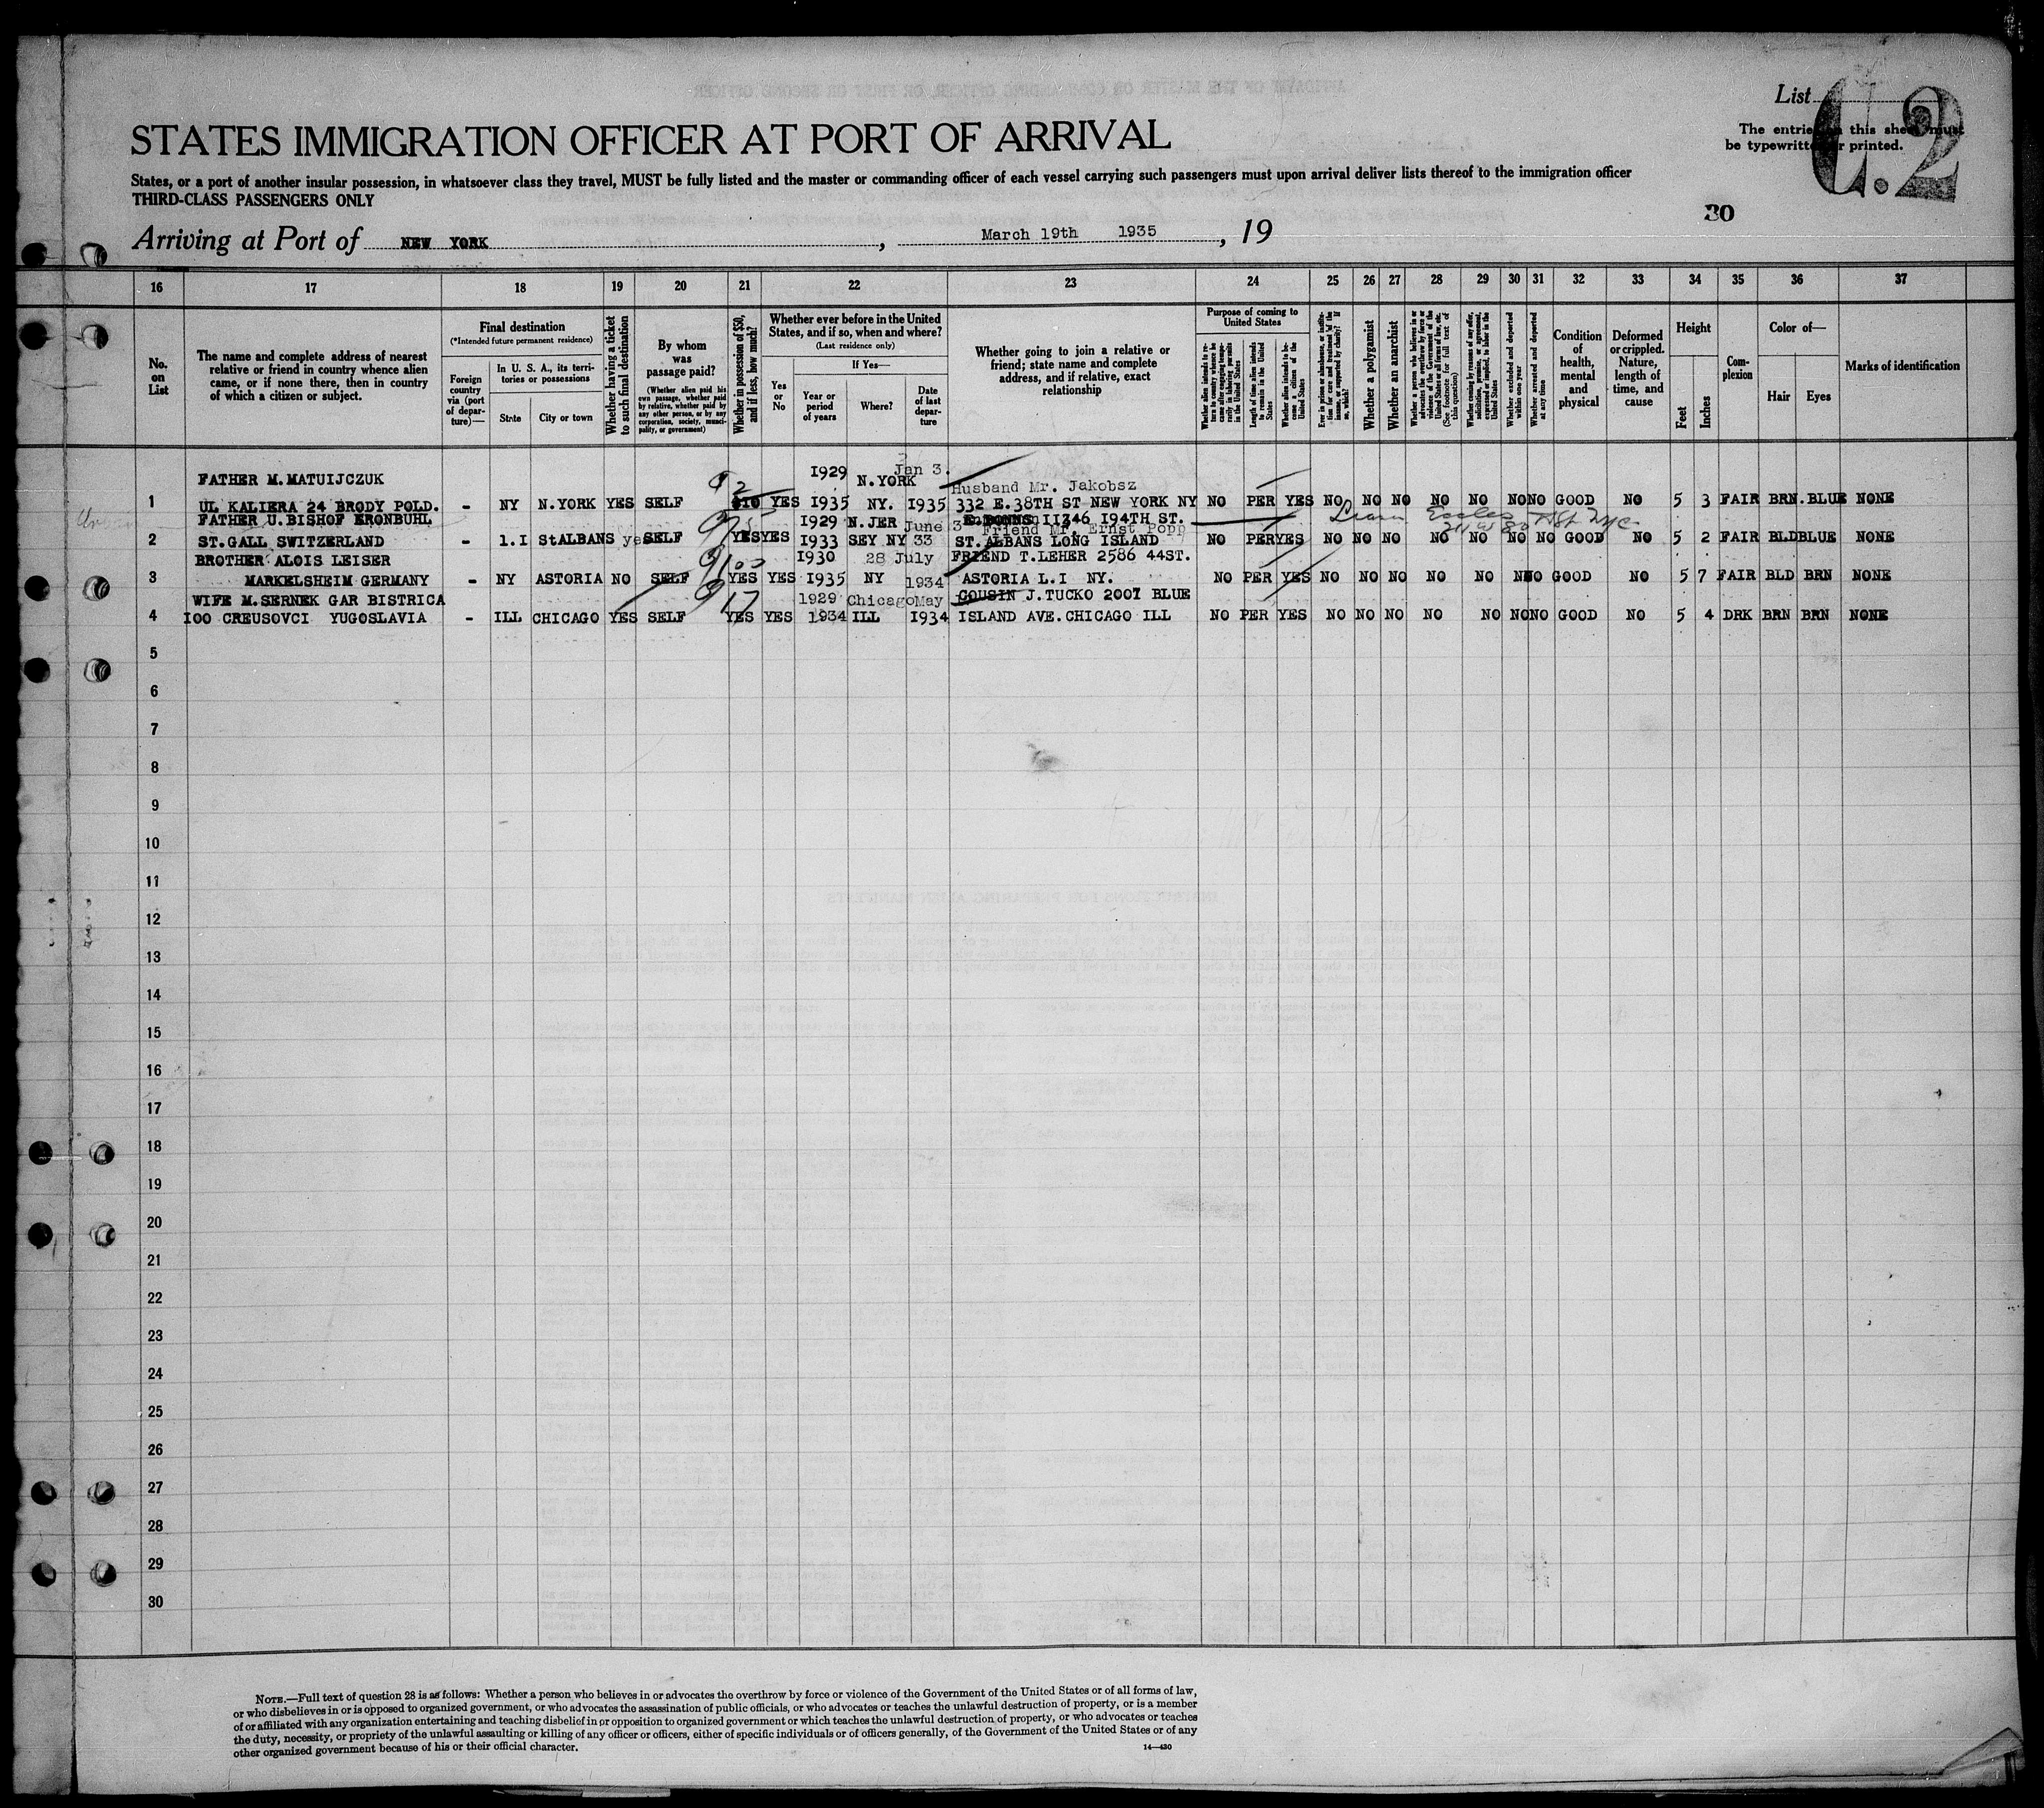 List
C.2
The entries on this sheet must
be typewritten or printed.
STATES IMMIGRATION OFFICER AT PORT OF ARRIVAL
States, or a port of another insular possession, in whatsoever class they travel, MUST be fully listed and the master or commanding officer of each vessel carrying such passengers must upon arrival deliver lists thereof to the immigration officer
THIRD-CLASS PASSENGERS ONLY
30
Arriving at Port of NEW YORK, March 19th 1935, 19
16 17 18 19 20 21 22 23 24 25 26 27 28 29 30 31 32 33 34 35 36 37
No. on List
The name and complete address of nearest relative or friend in country whence alien came, or if none there, then in country of which a citizen or subject.
Final destination
(*Intended future permanent residence)
Foreign country via (port of departure)—
In U. S. A., its territories or possessions
State
City or town
Whether having a ticket to such final destination
By whom was passage paid?
(Whether alien paid his own passage, whether paid by relative, whether paid by any other person, or by any corporation, society, municipality, or government)
Whether in possession of $50, and if less, how much?
Whether ever before in the United States, and if so, when and where?
(Last residence only)
Yes or No
If Yes—
Year or period of years
Where?
Date of last departure
Whether going to join a relative or friend; state name and complete address, and if relative, exact relationship
Purpose of coming to United States
Whether alien intends to return to country whence he came after engaging temporarily in laboring pursuits in the United States
Length of time alien intends to remain in the United States
Whether alien intends to become a citizen of the United States
Ever in prison or almshouse, or institution for care and treatment of the insane, or supported by charity? If so, which?
Whether a polygamist
Whether an anarchist
Whether a person who believes in or advocates the overthrow by force or violence of the Government of the United States or all forms of law, etc. (See footnote for full text of this question)
Whether coming by reason of any offer, solicitation, promise, or agreement, expressed or implied, to labor in the United States
Whether excluded and deported within one year
Whether arrested and deported at any time
Condition of health, mental and physical
Deformed or crippled. Nature, length of time, and cause
Height
Feet
Inches
Complexion
Color of—
Hair
Eyes
Marks of identification
FATHER M.MATUIJCZUK 1929 N.YORK Jan 3. Husband Mr. Jakobsz
1 UL KALIERA 24 BRODY POLD. - NY N.YORK YES SELF $10 YES 1935 NY. 1935 332 E.38TH ST NEW YORK NY NO PER YES NO NO NO NO NO NO NO GOOD NO 5 3 FAIR BRN. BLUE NONE
FATHER U.BISHOF KRONBUHL 1929 N.JER June 3 II346 I94TH ST.
Friend Mr. Ernst Popp
2 ST.GALL SWITZERLAND - l.I StALBANS yes SELF YES YES 1933 SEY NY 33 ST.ALBANS LONG ISLAND NO PER YES NO NO NO NO NO NO NO GOOD NO 5 2 FAIR BLD BLUE NONE
BROTHER ALOIS LEISER 1930 28 July FRIEND T.LEHER 2586 44ST.
3 MARKELSHEIM GERMANY - NY ASTORIA NO SELF YES YES 1935 NY 1934 ASTORIA L.I NY. NO PER YES NO NO NO NO NO NO NO GOOD NO 5 7 FAIR BLD BRN NONE
WIFE M.SERNEK GAR BISTRICA 1929 Chicago May COUSIN J.TUCKO 2007 BLUE
4 IOO CREUSOVCI YUGOSLAVIA - ILL CHICAGO YES SELF YES YES 1934 ILL 1934 ISLAND AVE.CHICAGO ILL NO PER YES NO NO NO NO NO NO NO GOOD NO 5 4 DRK BRN BRN NONE
5
6
7
8
9
10
11
12
13
14
15
16
17
18
19
20
21
22
23
24
25
26
27
28
29
30
NOTE.—Full text of question 28 is as follows: Whether a person who believes in or advocates the overthrow by force or violence of the Government of the United States or of all forms of law,
or who disbelieves in or is opposed to organized government, or who advocates the assassination of public officials, or who advocates or teaches the unlawful destruction of property, or is a member
of or affiliated with any organization entertaining and teaching disbelief in or opposition to organized government or which teaches the unlawful destruction of property, or who advocates or teaches
the duty, necessity, or propriety of the unlawful assaulting or killing of any officer or officers, either of specific individuals or of officers generally, of the Government of the United States or of any
other organized government because of his or their official character.
14—430